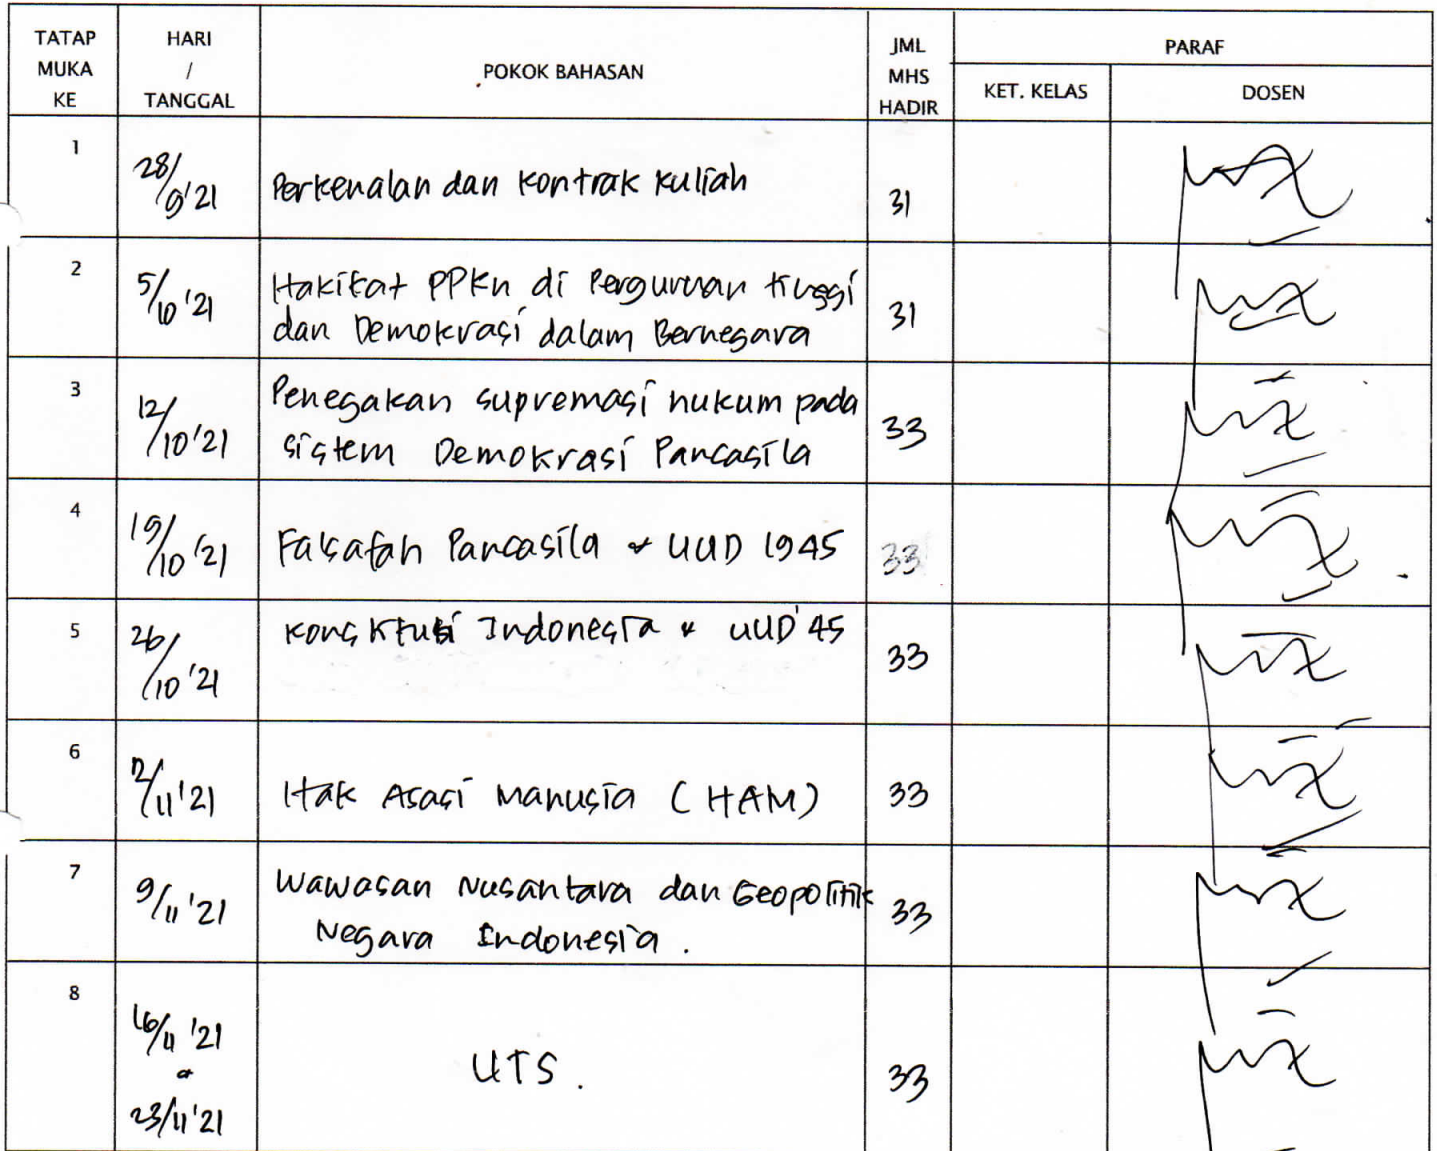 TATAP MUKA KE | HARI / TANGGAL | POKOK BAHASAN | JML MHS HADIR | PARAF
KET. KELAS | DOSEN
1 | 28/9'21 | Perkenalan dan Kontrak Kuliah | 31
2 | 5/10'21 | Hakikat PPKn di Perguruan tinggi
dan Demokrasi dalam Bernegara | 31
3 | 12/10'21 | Penegakan supremasi hukum pada
sistem Demokrasi Pancasila | 33
4 | 19/10'21 | Falsafah Pancasila & UUD 1945 | 33
5 | 26/10'21 | Indonesia & UUD'45 | 33
6 | 2/11'21 | Hak Asasi Manusia (HAM) | 33
7 | 9/11'21 | Wawasan Nusantara dan Geopolitik
Negara Indonesia. | 33
8 | 16/11'21
&
23/11'21 | UTS. | 33